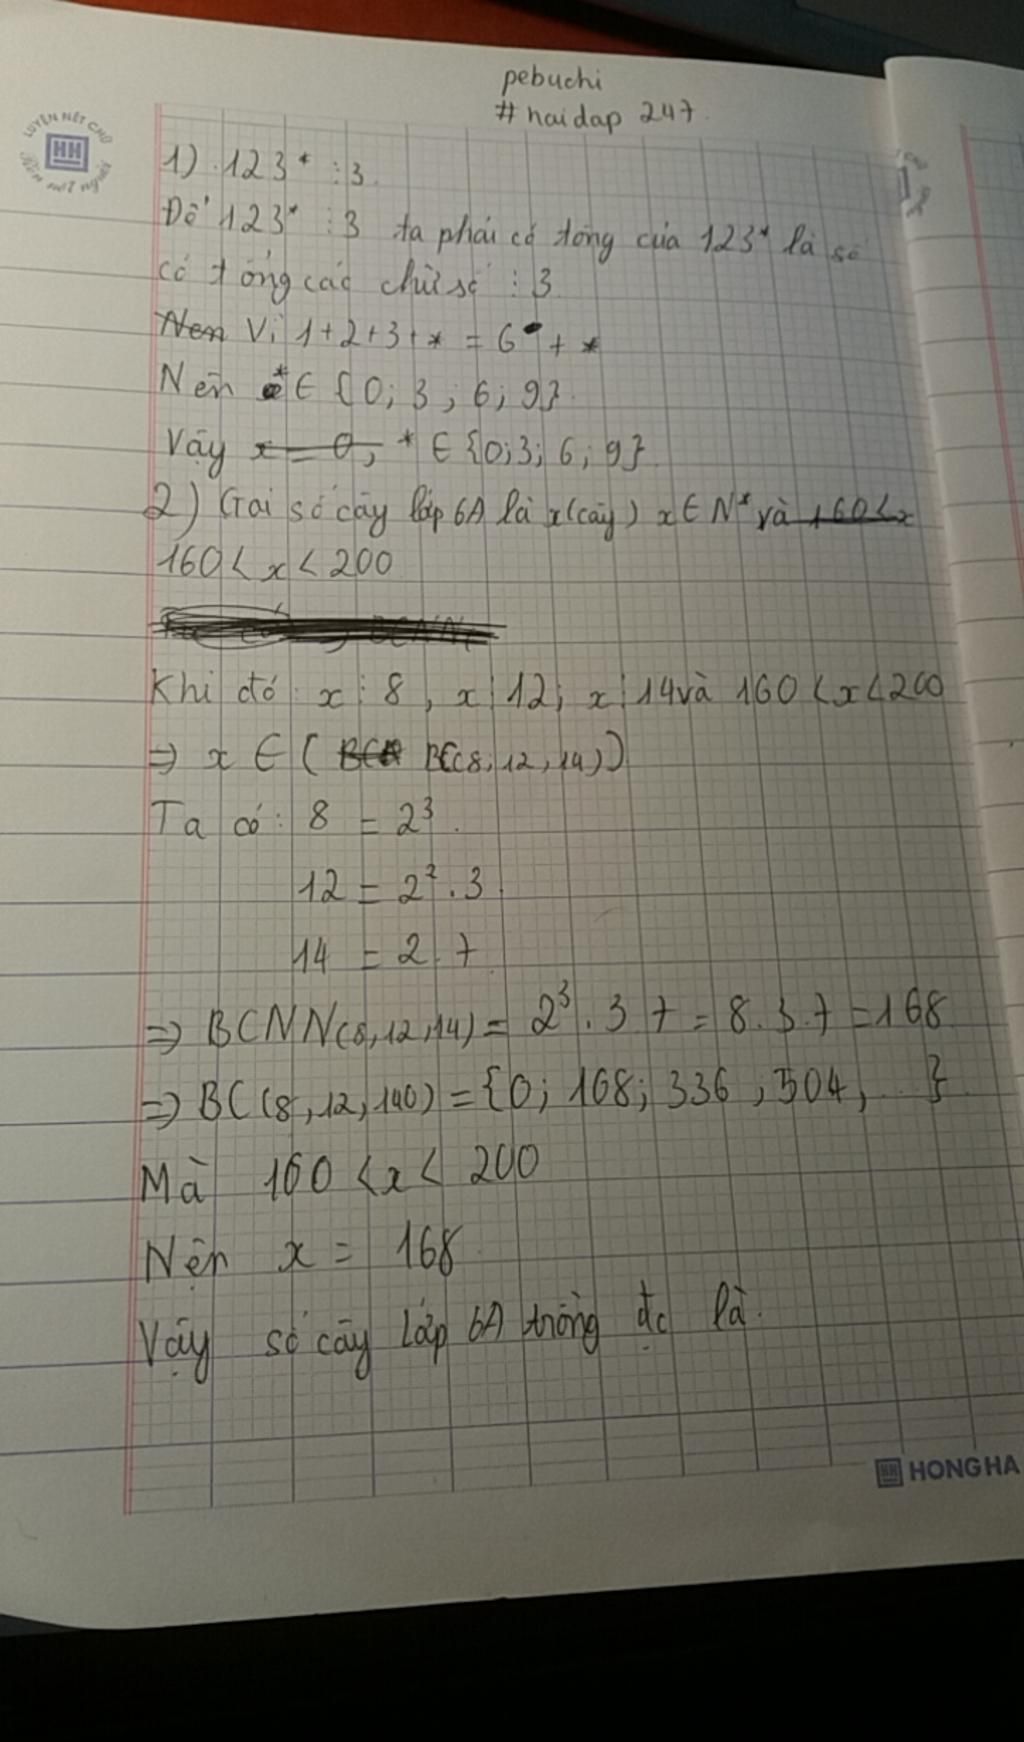 pebuchi
# haidap 247.
LUYỆN NÉT CHỮ
HH
Rèn nết người
1) 123* ⋮ 3.
Để 123* ⋮ 3 ta phải có tổng của 123* là số
có tổng các chữ số ⋮ 3.
Nen Vì 1+2+3+* = 6 + *
Nên * ∈ {0; 3; 6; 9}.
Vậy x = 0, * ∈ {0;3; 6; 9}.
2) Gọi số cây lớp 6A là x(cây) x ∈ N* và 160 < x
160 < x < 200
BCNN
Khi đó: x ⋮ 8, x ⋮ 12; x ⋮ 14 và 160 < x < 200
=> x ∈ ( BC(8,12,14))
Ta có: 8 = 2³.
12 = 2².3.
14 = 2.7
=> BCNN(8,12,14) = 2³.3 7 = 8.3.7 = 168
=> BC(8,12,140) = {0; 168; 336, 504, ...}
Mà 160 < x < 200
Nên x = 168.
Vậy số cây lớp 6A trồng đc là.
HH HONG HA